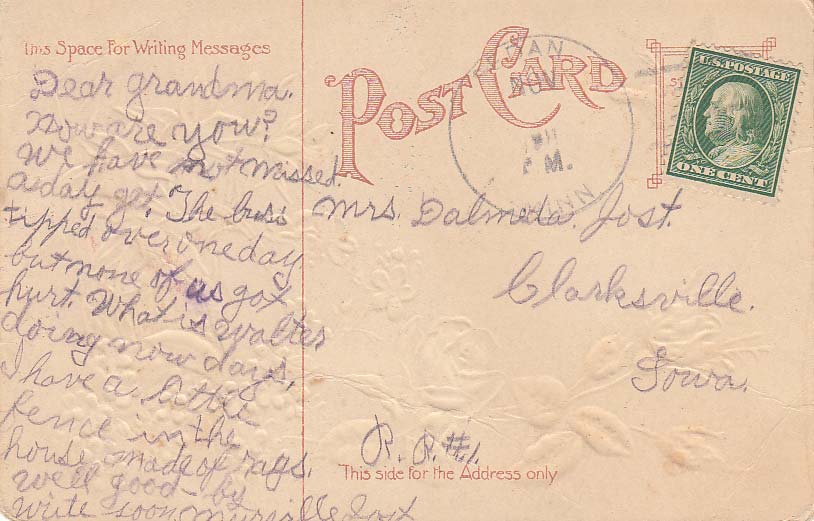 This Space For Writing Messages
POST CARD
Dear grandma.
How are you?
We have not missed
a day yet. The buss
tipped over one day
but none of us got
hurt. What is Walter
doing now days,
I have a little
fence in the
house made of rags.
well good-by
write soon Jost
Mrs. Dalmeda Jost.
Clarksville.
Iowa.
R. R. #1.
This side for the Address only
NOV
P.M.
MINN
U.S. POSTAGE
ONE CENT